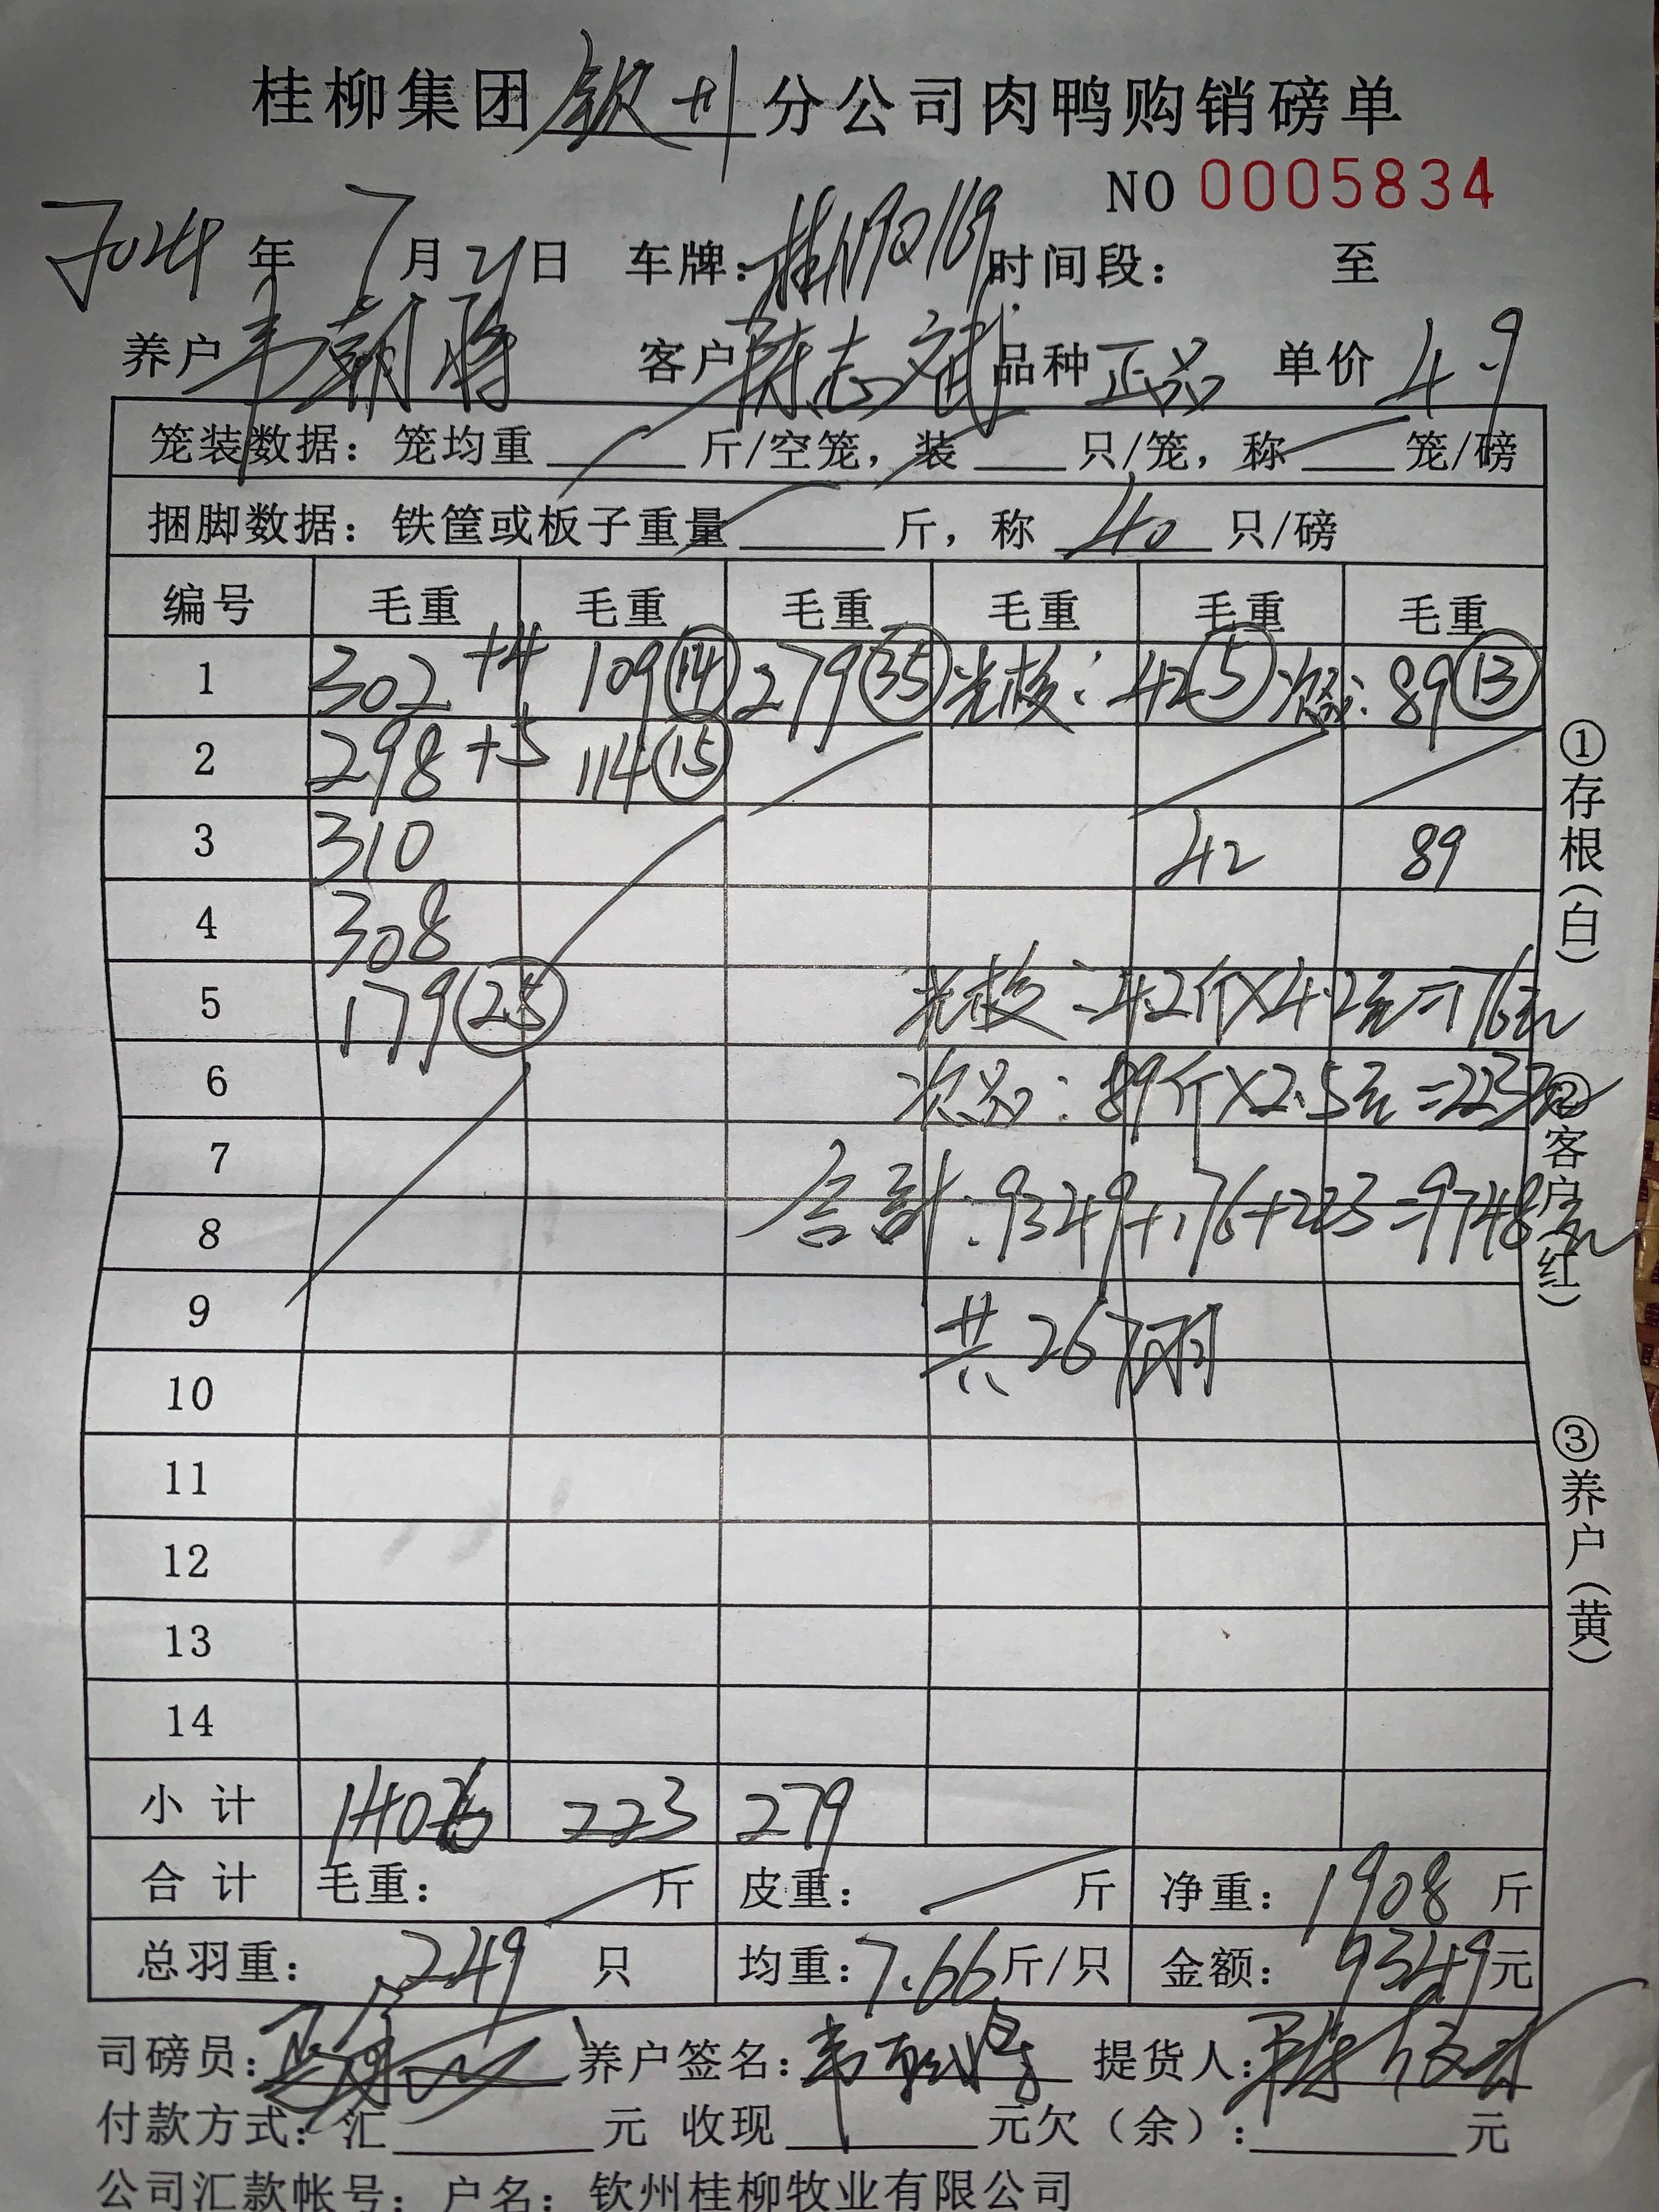 桂柳集团钦州分公司肉鸭购销磅单
NO 0005834
2024年 7月21日 车牌:桂N9Q169 时间段: 至
养户 韦朝 客户 陈志斌 品种 正品 单价 4.9
笼装数据:笼均重 斤/空笼,装 只/笼,称 笼/磅
捆脚数据:铁筐或板子重量 斤,称 40 只/磅
编号 毛重 毛重 毛重 毛重 毛重 毛重
1 302+4 109⑭ 279㉟ 光棱: 42⑤ 次品: 89⑬
2 298+5 114⑮
3 310 42 89
4 308
5 179㉕ 光棱:42斤×4.2元=176元
6 次品:89斤×2.5元=223元
7 合计:9349+176+223=9748元
8
9 共267羽
10
11
12
13
14
小计 1406 223 279
合计 毛重: 斤 皮重: 斤 净重:1908斤
总羽重:249只 均重:7.66斤/只 金额:9349元
司磅员: 养户签名:韦朝 提货人:
付款方式:汇 元 收现 元欠(余): 元
公司汇款帐号:户名:钦州桂柳牧业有限公司
①存根(白)
②客户(红)
③养户(黄)